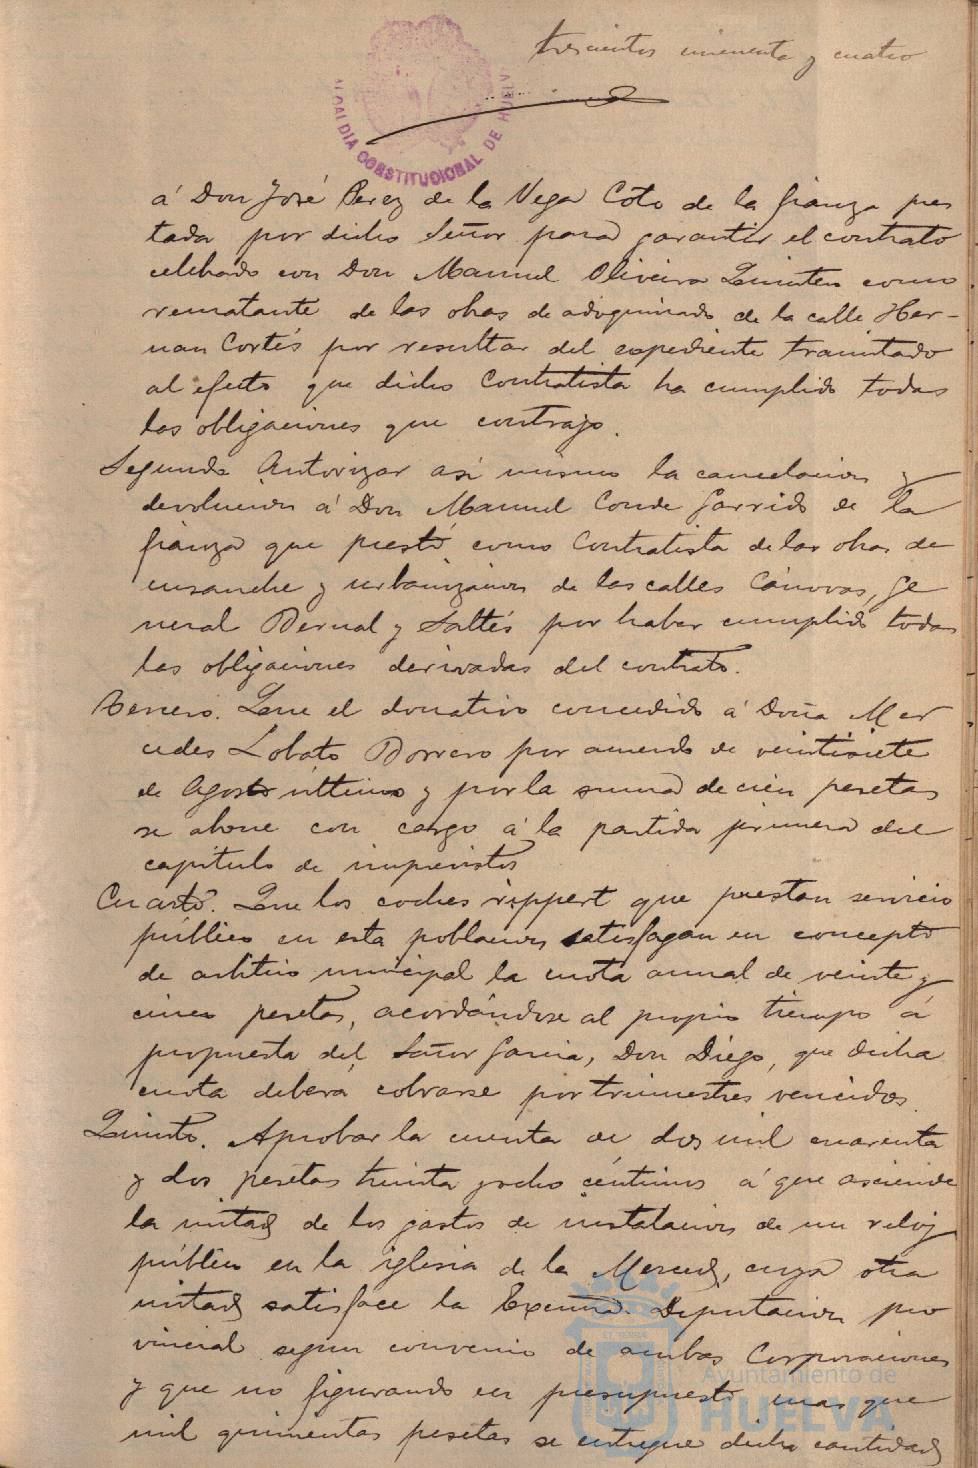 trescientos cincuenta y cuatro
ALCALDIA CONSTITUCIONAL DE HUELVA
á Don José Perez de la Vega Coto de la fianza pres
tada por dicho Señor para garantir el contrato
celebrado con Don Manuel Oliveira Quintero como
rematante de las obras de adoquinado de la calle Her-
nan Cortés por resultar del expediente tramitado
al efecto que dicho Contratista ha cumplido todas
las obligaciones que contrajo.
Segundo Autorizar asi mismo la cancelacion y
devolucion á Don Manuel Conde Garrido de la
fianza que prestó como Contratista de las obras de
ensanche y urbanizacion de las calles Cánovas, Ge
neral Bernal y Saltés por haber cumplido todas
las obligaciones derivadas del contrato.
Tercero. Que el donativo concedido á Doña Mer
cedes Lobato Borrero por acuerdo de veintisiete
de Agosto último y por la suma de cien pesetas
se abone con cargo á la partida primera del
capitulo de imprevistos
Cuarto. Que los coches rippert que prestan servicio
público en esta poblacion satisfagan en concepto
de arbitrio municipal la cuota anual de veinte y
cinco pesetas, acordándose al propio tiempo á
propuesta del Señor Garcia, Don Diego, que dicha
cuota deberá cobrarse por trimestres vencidos
Quinto. Aprobar la cuenta de dos mil cuarenta
y dos pesetas treinta y ocho céntimos á que asciende
la mitad de los gastos de instalacion de un reloj
público en la iglesia de la Merced, cuya otra
mitad satisface la Excma. Diputacion pro
vincial segun convenio de ambas Corporaciones
y que no figurando en presupuesto mas que
mil quinientas pesetas se entregue dicha cantidad
Ayuntamiento de
HUELVA